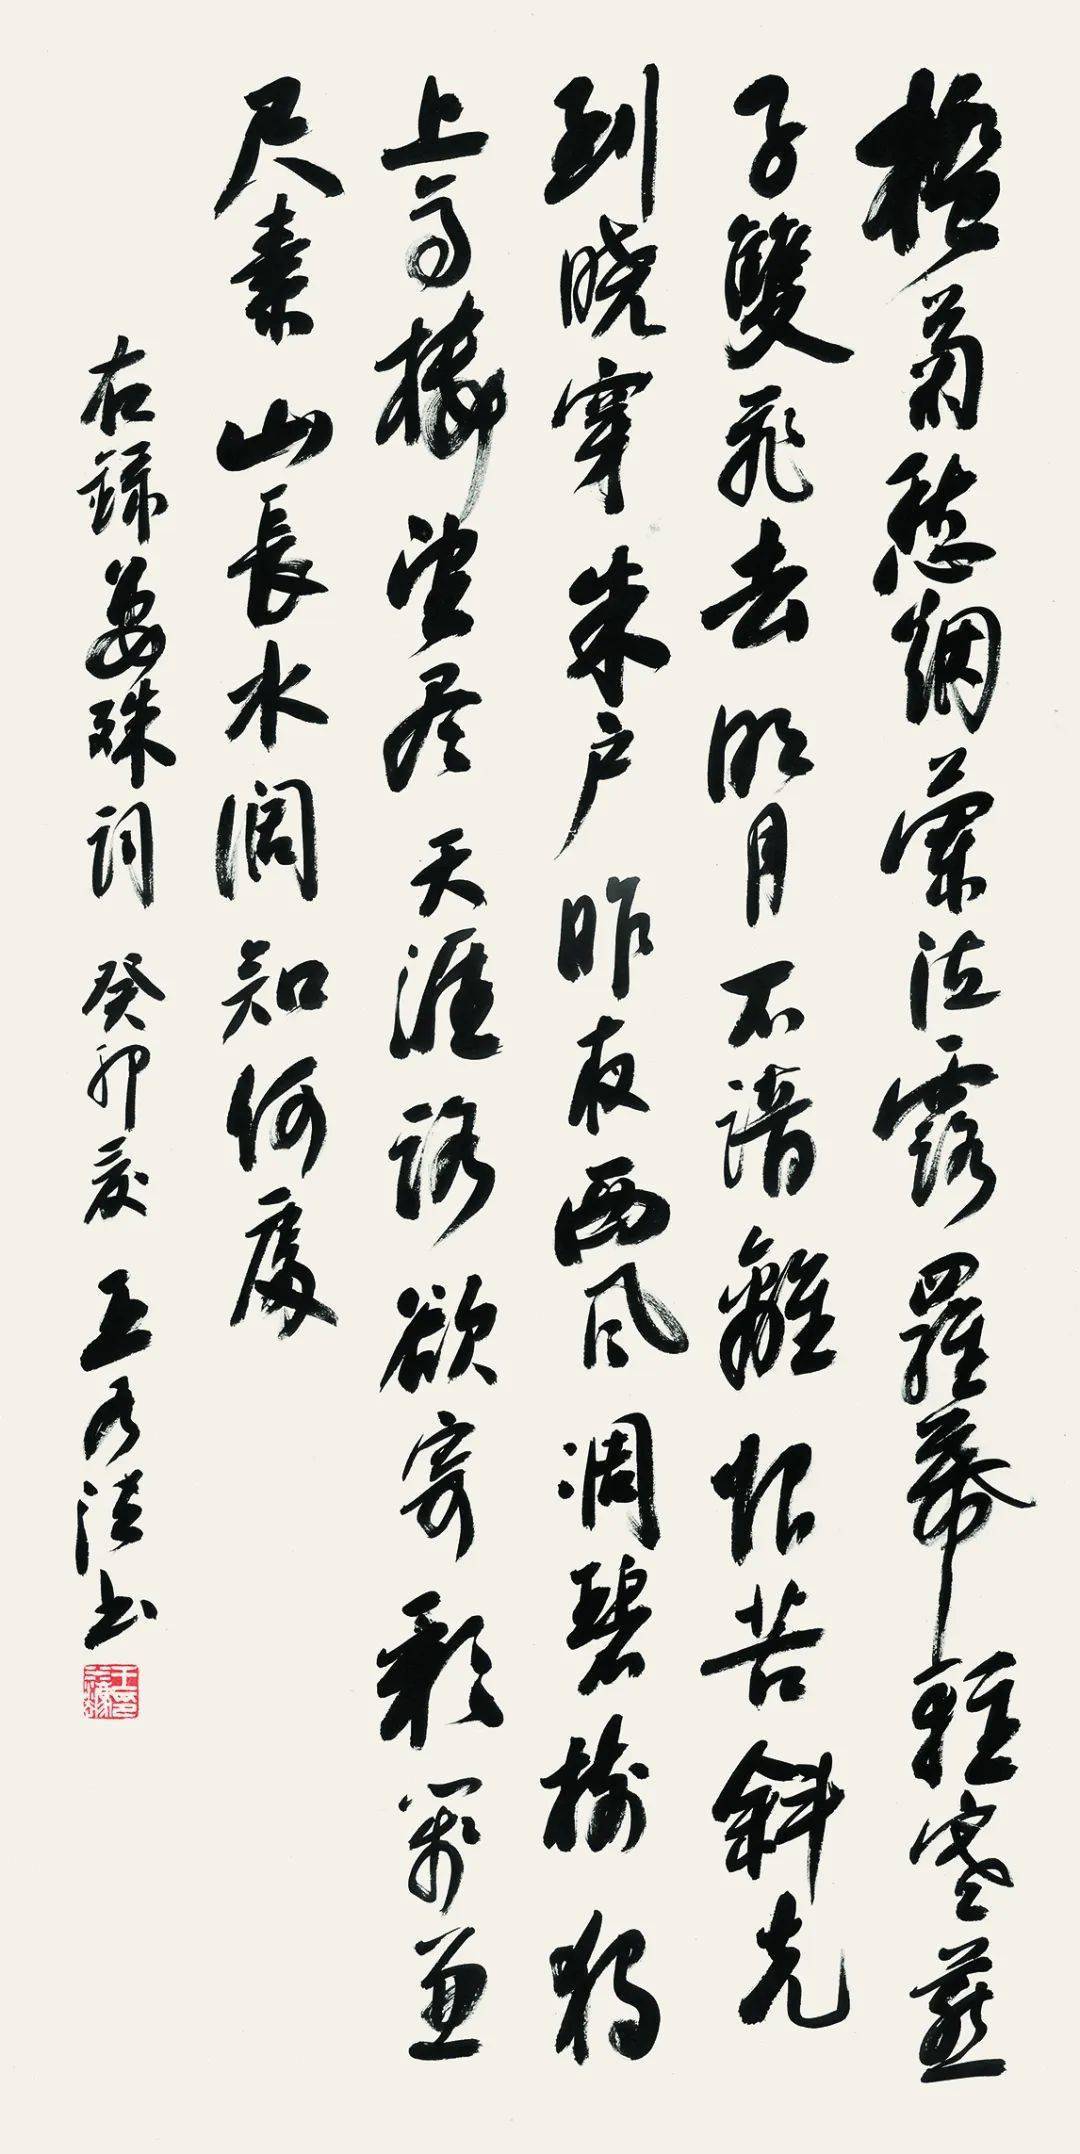 檻菊愁烟蘭泣露羅幕輕寒燕
子雙飛去明月不諳離恨苦斜光
到曉穿朱户昨夜西風凋碧樹獨
上高樓望盡天涯路欲寄彩箋兼
尺素山長水闊知何處
右録晏殊詞 癸卯夏 王 书